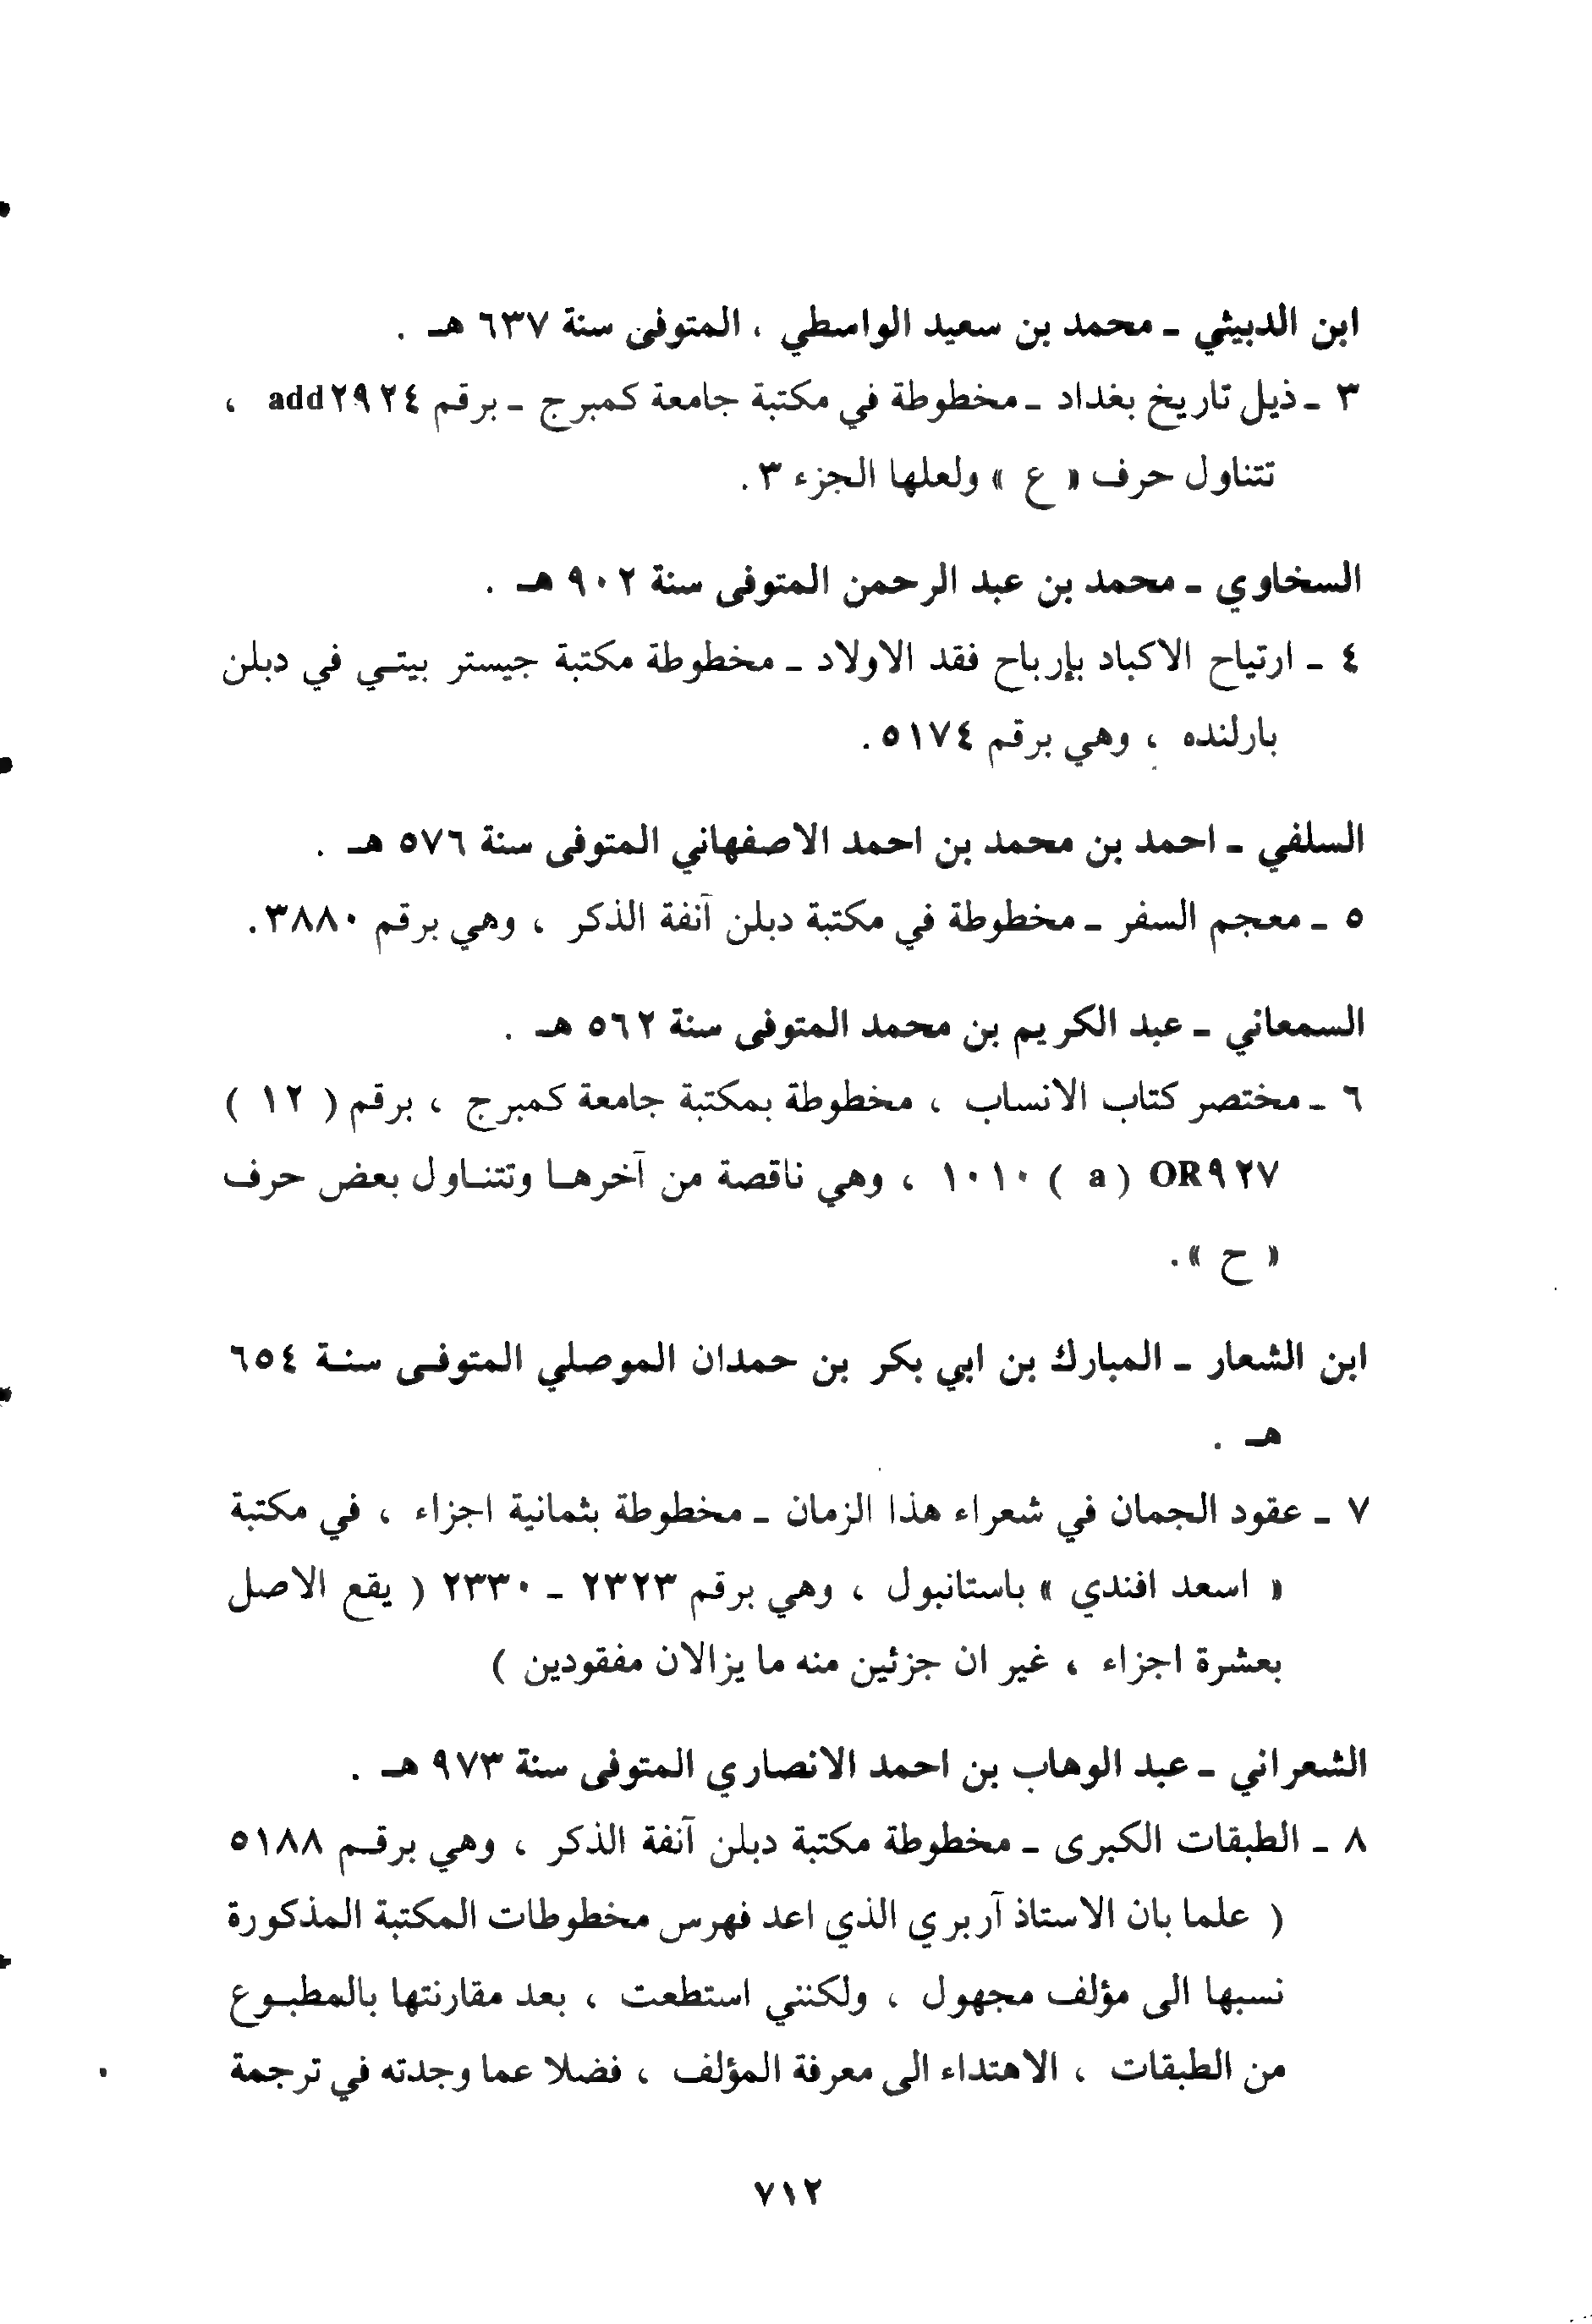 ابن الدبيثي ـ محمد بن سعيد الواسطي ، المتوفى سنة ٦٣٧ هـ .
٣ ـ ذيل تاريخ بغداد ـ مخطوطة في مكتبة جامعة كمبرج ـ برقم add٢٩٢٤ ،
تتناول حرف « ع » ولعلها الجزء ٣ .
السخاوي ـ محمد بن عبد الرحمن المتوفى سنة ٩٠٢ هـ .
٤ ـ ارتياح الاكباد بإرباح فقد الاولاد ـ مخطوطة مكتبة جيستر بيتـي في دبلن
بارلنده ، وهي برقم ٥١٧٤ .
السلفي ـ احمد بن محمد بن احمد الاصفهاني المتوفى سنة ٥٧٦ هـ .
٥ ـ معجم السفر ـ مخطوطة في مكتبة دبلن آنفة الذكر ، وهي برقم ٣٨٨٠ .
السمعاني ـ عبد الكريم بن محمد المتوفى سنة ٥٦٢ هـ .
٦ ـ مختصر كتاب الانساب ، مخطوطة بمكتبة جامعة كمبرج ، برقم ( ١٢ )
OR٩٢٧ ( a ) ١٠١٠ ، وهي ناقصة من آخرهـا وتتنـاول بعض حرف
« ح » .
ابن الشعار ـ المبارك بن ابي بكر بن حمدان الموصلي المتوفـى سنـة ٦٥٤
هـ .
٧ ـ عقود الجمان في شعراء هذا الزمان ـ مخطوطة بثمانية اجزاء ، في مكتبة
« اسعد افندي » باستانبول ، وهي برقم ٢٣٢٣ ـ ٢٣٣٠ ( يقع الاصل
بعشرة اجزاء ، غير ان جزئين منه ما يزالان مفقودين )
الشعراني ـ عبد الوهاب بن احمد الانصاري المتوفى سنة ٩٧٣ هـ .
٨ ـ الطبقات الكبرى ـ مخطوطة مكتبة دبلن آنفة الذكر ، وهي برقـم ٥١٨٨
( علما بان الاستاذ آربري الذي اعد فهرس مخطوطات المكتبة المذكورة
نسبها الى مؤلف مجهول ، ولكنني استطعت ، بعد مقارنتها بالمطبـوع
من الطبقات ، الاهتداء الى معرفة المؤلف ، فضلا عما وجدته في ترجمة
٧١٢